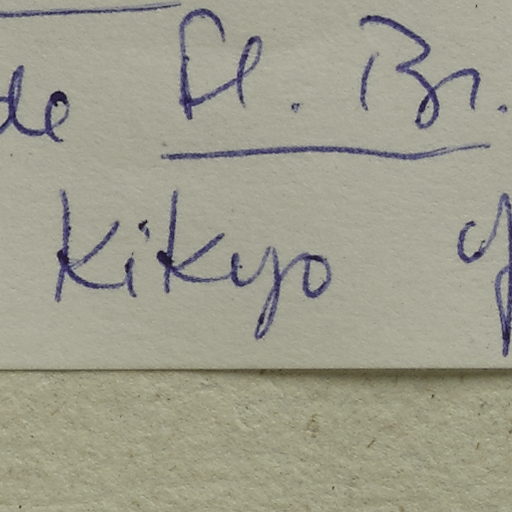 de fl. Br.
Kikyo